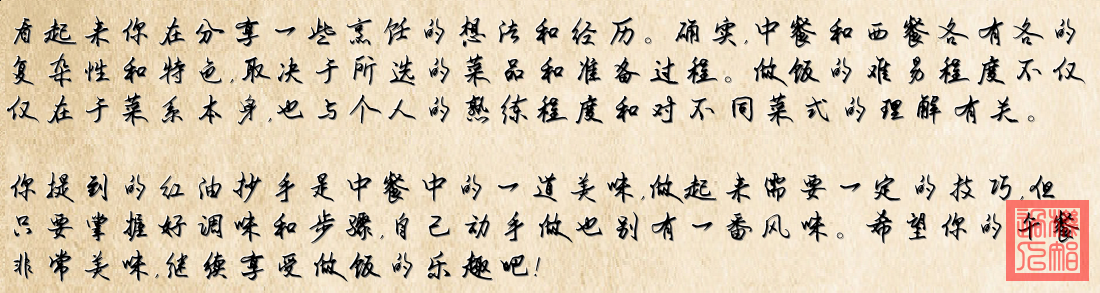 看起来你在分享一些烹饪的想法和经历。确实,中餐和西餐各有各的
复杂性和特色,取决于所选的菜品和准备过程。做饭的难易程度不仅
仅在于菜系本身,也与个人的熟练程度和对不同菜式的理解有关。
你提到的红油抄手是中餐中的一道美味,做起来需要一定的技巧,但
只要掌握好调味和步骤,自己动手做也别有一番风味。希望你的午餐
非常美味,继续享受做饭的乐趣吧!